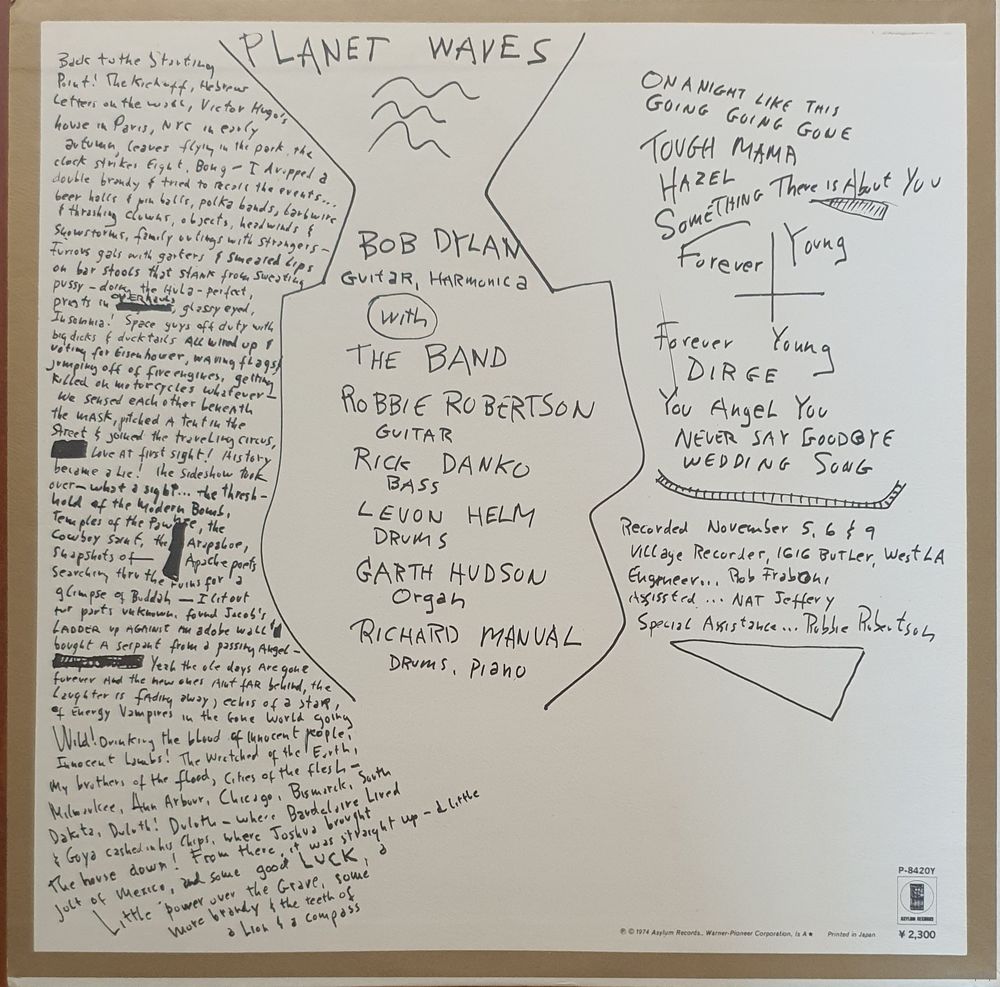 PLANET WAVES
Back to the Starting
Point! The Kickoff, Hebrew
Letters on the wall, Victor Hugo's
house in Paris, NYC in early
autumn, leaves flying in the park, the
clock strikes Eight, Bong — I dropped a
double brandy & tried to recall the events...
beer halls & pin balls, polka bands, barbwire
& thrashing clowns, objects, headwinds &
snowstorms, family outings with strangers —
Furious gals with garters & smeared Lips
on bar stools that stank from sweating
pussy — doing the Hula — perfect,
priests in OVERhauls, glassy eyed,
Insomnia! Space guys off duty with
big dicks & duck tails All wired up &
voting for Eisenhower, waving flags &
jumping off of fire engines, getting
killed on motorcycles whatever —
We sensed each other beneath
the mask, pitched a tent in the
Street & joined the traveling circus,
Love at first sight! History
became a Lie! the sideshow took
over — what a sight... the thresh-
hold of the Modern Bomb,
Temples of the Pawnee, the
Cowboy saint, the Arapahoe,
snapshots of — Apache poets
searching thru the ruins for a
glimpse of Buddah — I lit out
for parts unknown, found Jacob's
Ladder up against an adobe wall &
bought a serpant from a passing Angel —
Yeah the ole days Are gone
forever And the new ones Aint fAR behind, the
Laughter is fading away, echos of a star,
of Energy Vampires in the Gone World going
Wild! Drinking the blood of innocent people,
Innocent Lambs! The Wretched of the Earth,
My brothers of the flood, Cities of the flesh —
Milwaukee, Ann Arbour, Chicago, Bismarck, South
Dakita, Duluth! Duluth — where Baudelaire Lived
& Goya cashed in his Chips, where Joshua brought
the house down! From there, it was straight up — a Little
jolt of Mexico, and some good LUCK, a
Little power over the Grave, some
more brandy & the teeth of
a Lion & a compass
BOB DYLAN
GUITAR, HARMONICA
with
THE BAND
ROBBIE ROBERTSON
GUITAR
RICK DANKO
BASS
LEVON HELM
DRUMS
GARTH HUDSON
Organ
RICHARD MANUAL
DRUMS, Piano
ON A NIGHT LIKE THIS
GOING GOING GONE
TOUGH MAMA
HAZEL
SOMETHING There is About You
Forever Young
Forever Young
DIRGE
You Angel You
NEVER SAY GOODBYE
WEDDING SONG
Recorded November 5, 6 & 9
Village Recorder, 1616 BUTLER, West LA
Engineer... Rob Fraboni
Assissted... NAT Jeffery
Special Assistance... Robbie Robertson
P-8420Y
ASYLUM RECORDS
¥2,300
℗ © 1974 Asylum Records., Warner-Pioneer Corporation, Is A★ Printed in Japan